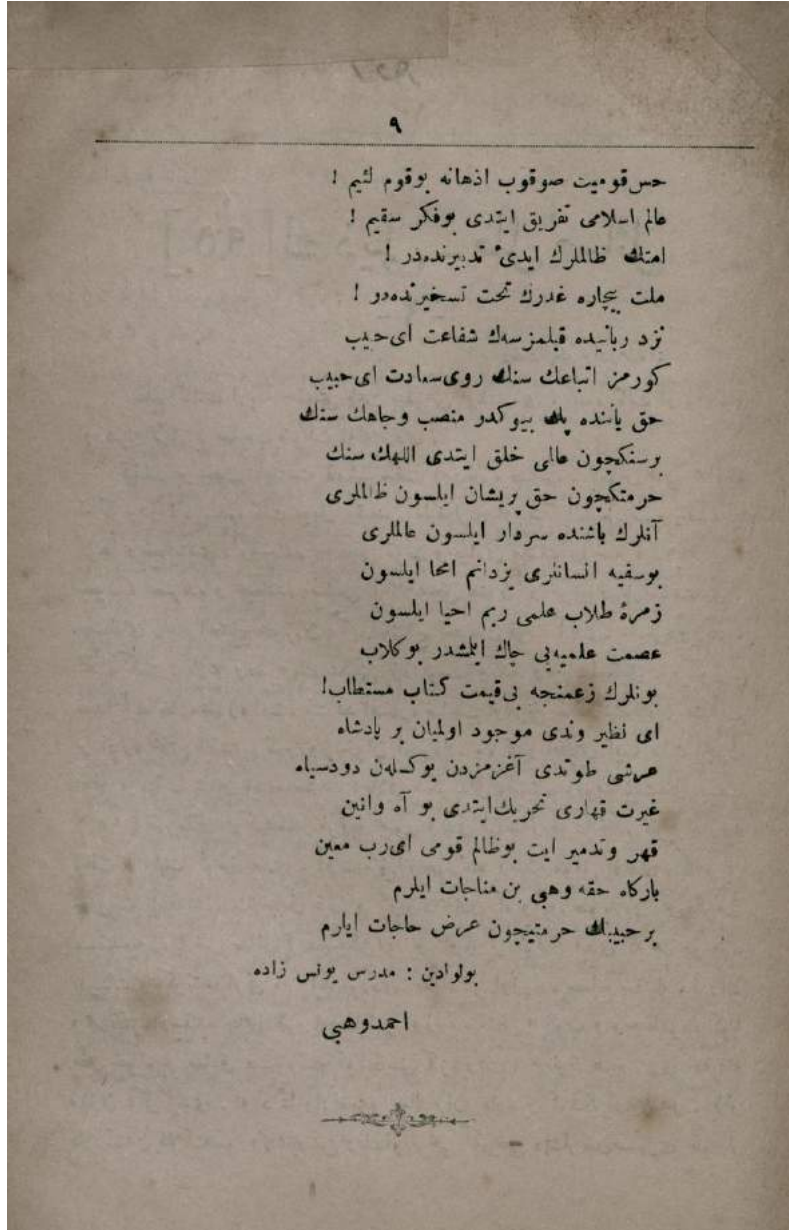 ٩
حس قومیت صوقوب اذهانه بوقوم لئیم !
عالم اسلامی تفریق ایتدی بوفکر سقیم !
امتك ظالملرك ایدیٔ تدبیرنده‌در !
ملت بیچاره غدرك تحت تسخیرنده‌در !
نزد ربانیده قیلمزسه‌ك شفاعت ای حبیب
کورمز اتباعك سنك روی سعادت ای حبیب
حق یاننده پك بیوکدر منصب وجاهك سنك
برسنکچون عالمی خلق ایتدی اللهك سنك
حرمتکچون حق پریشان ایلسون ظالملری
آنلرك باشنده سردار ایلسون عالملری
بوسفیه انسانلری یزدانم امحا ایلسون
زمرهٔ طلاب علمی ربم احیا ایلسون
عصمت علمیه‌یی چاك ایلمشدر بوکلاب
بونلرك زعمنجه بی‌قیمت کتاب مستطاب!
ای نظیر وندی موجود اولمیان بر پادشاه
عرشی طوتدی آغزمزدن یوکسله‌ن دودسیاه
غیرت قهاری تحریك ایتدی بو آه وانین
قهر وتدمیر ایت بوظالم قومی ای رب معین
بارکاه حقه وهبی بن مناجات ایلرم
برحبیبك حرمتیچون عرض حاجات ایلرم
بولوادین : مدرس یونس زاده
احمدوهبی